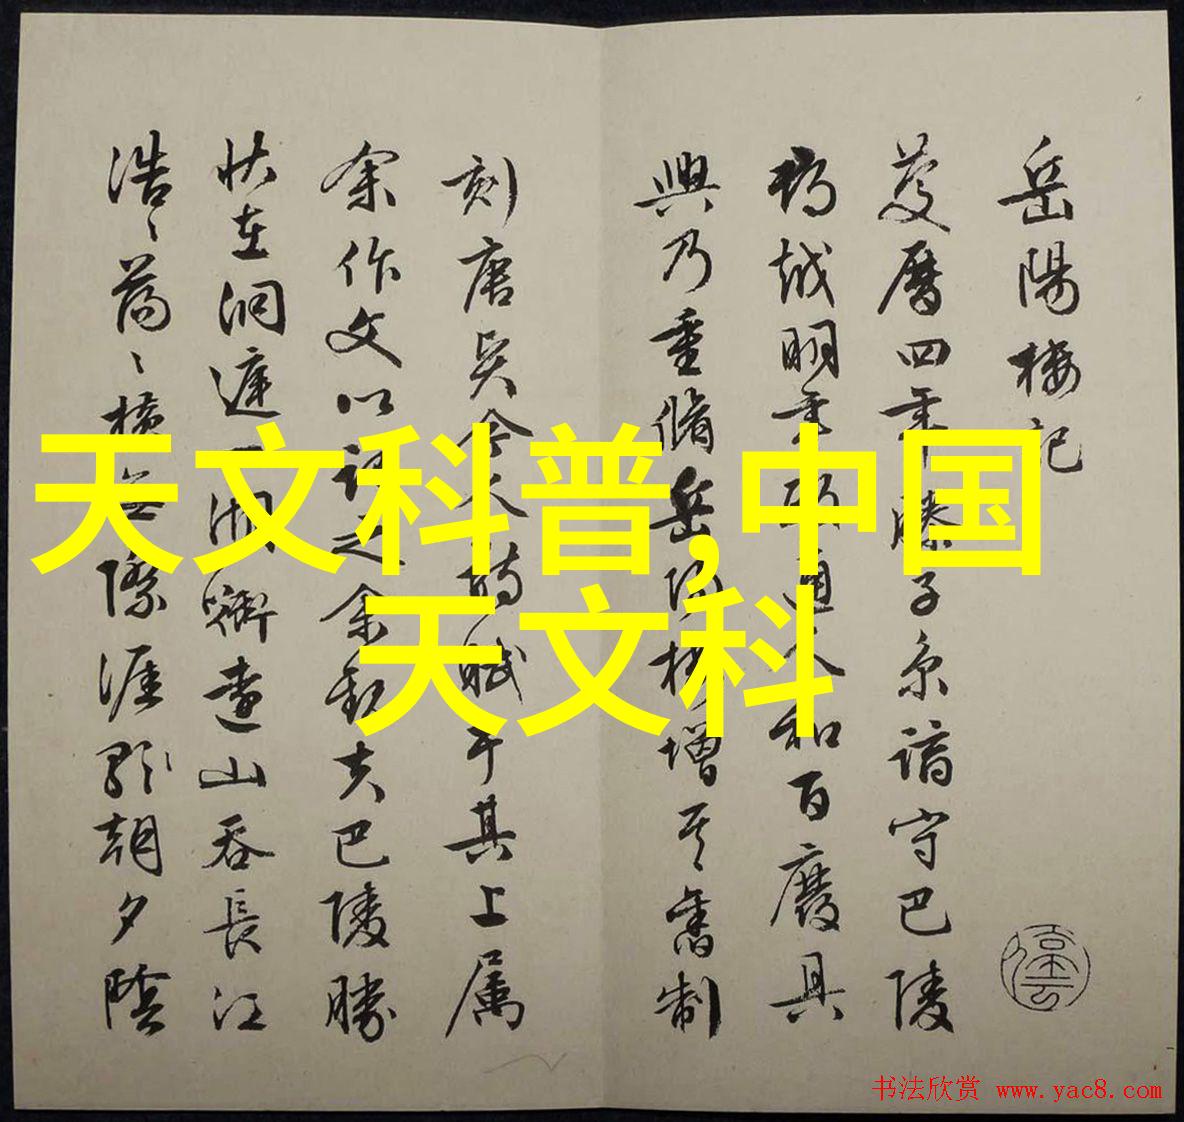 岳陽樓記
慶曆四年滕子京謫守巴陵
郡越明年政通人和百廢具
興乃重脩岳陽樓增其舊制
刻唐賢今人詩賦于其上属
余作文以記之余觀夫巴陵勝
状在洞庭一湖銜遠山吞長江
浩〻蕩〻橫無際涯朝夕陰
天文科普,中国
天文科
书法欣赏 www.yac8.com